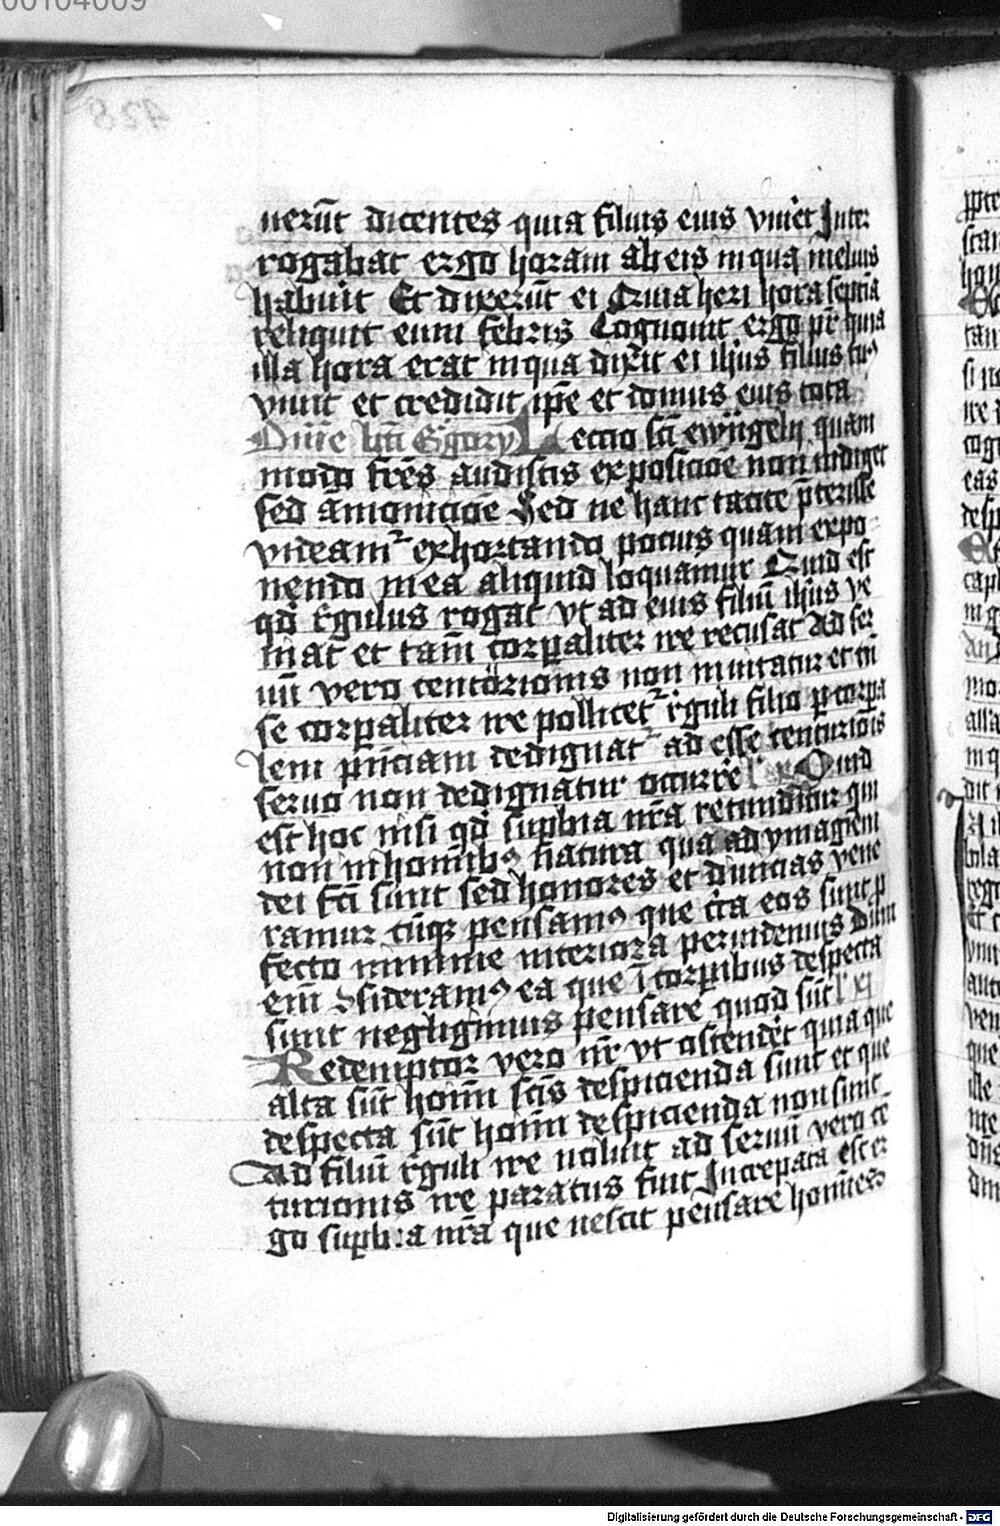 00104009
428
nerūt dicentes quia filius eius viuet Inter
rogabat ergo horam ab eis in qua melius
habuit Et dixerūt ei Quia heri hora septīa
reliquit eum febris Cognouit ergo pr̄ quia
illa hora erat in qua dixit ei ihūs filius tu⁹
viuit et credidit ip̄e et domus eius tota
Om̄e bt̄i Gͤgory Lectio sc̄i ewāngelij quam
modo fr̄es audistis exposicōe non indiget
sed āmonicōe Sed ne hanc tacite p̄terisse
videamᷣ exhortando pocius quam expo⸗
nendo mea aliquid loquamur Quid est
qd̄ rͤgulus rogat vt ad eius filiū ihūs ve
niat et tam̄ corꝑaliter ire recusat Ad ser
uū vero centurionis non inuitatur et tn̄
se corꝑaliter ire pollicetᷣ rͤguli filio ꝑ corꝑa
lem p̄nciam dedignatᷣ ad esse centuriōis
seruo non dedignatur occurrͤe Quid
est hoc nisi qd̄ suꝑbia nr̄a retunditur qui
non in homībꝯ n̄atura qua ad ymagiem
dei fc̄i sunt sed honores et diuicias vene
ramur cūqꝫ pensamꝯ que cͥca eos sunt ꝑ
fecto minime interiora peruidemus Dum
em̄ ꝯsideramꝯ ea que ī corꝑibus despecta
sunt negligimus pensare quod sūt
Redemptor vero nr̄ vt ostendͤet quia que
alta sūt homī sc̄is despicienda sunt et que
despecta sūt homī despicienda non sunt
Ad filiū rͤguli ire noluit ad seruū vero cē
turionis ire paratus fuit Increpata est er
go suꝑbia nr̄a que nescit pensare homīes
Digitalisierung gefördert durch die Deutsche Forschungsgemeinschaft - DFG